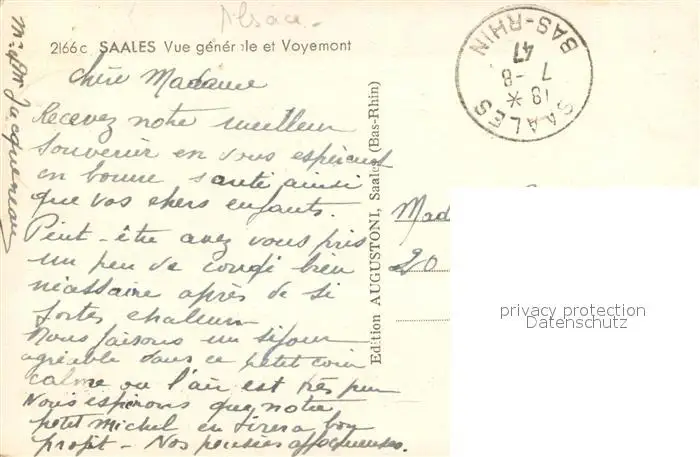 Alsace -
2166c SAALES Vue générale et Voyemont
SAALES
18 * 7 - 8
47
BAS-RHIN
Chère Madame
Recevez notre meilleur
souvenir en vous espérant
en bonne santé ainsi
que vos chers enfants.
Peut-être avez vous pris
un peu de congé bien
nécassaire après de si
fortes chaleurs
Nous faisons un séjour
agréable dans ce petit coin
calme ou l'air est très pur
Nous espérons que notre
petit Michel en tirera bon
profit - Nos pensées affectueuses.
Jacquereau
Edition AUGUSTONI, Saales (Bas-Rhin)
Mad
20
privacy protection
Datenschutz